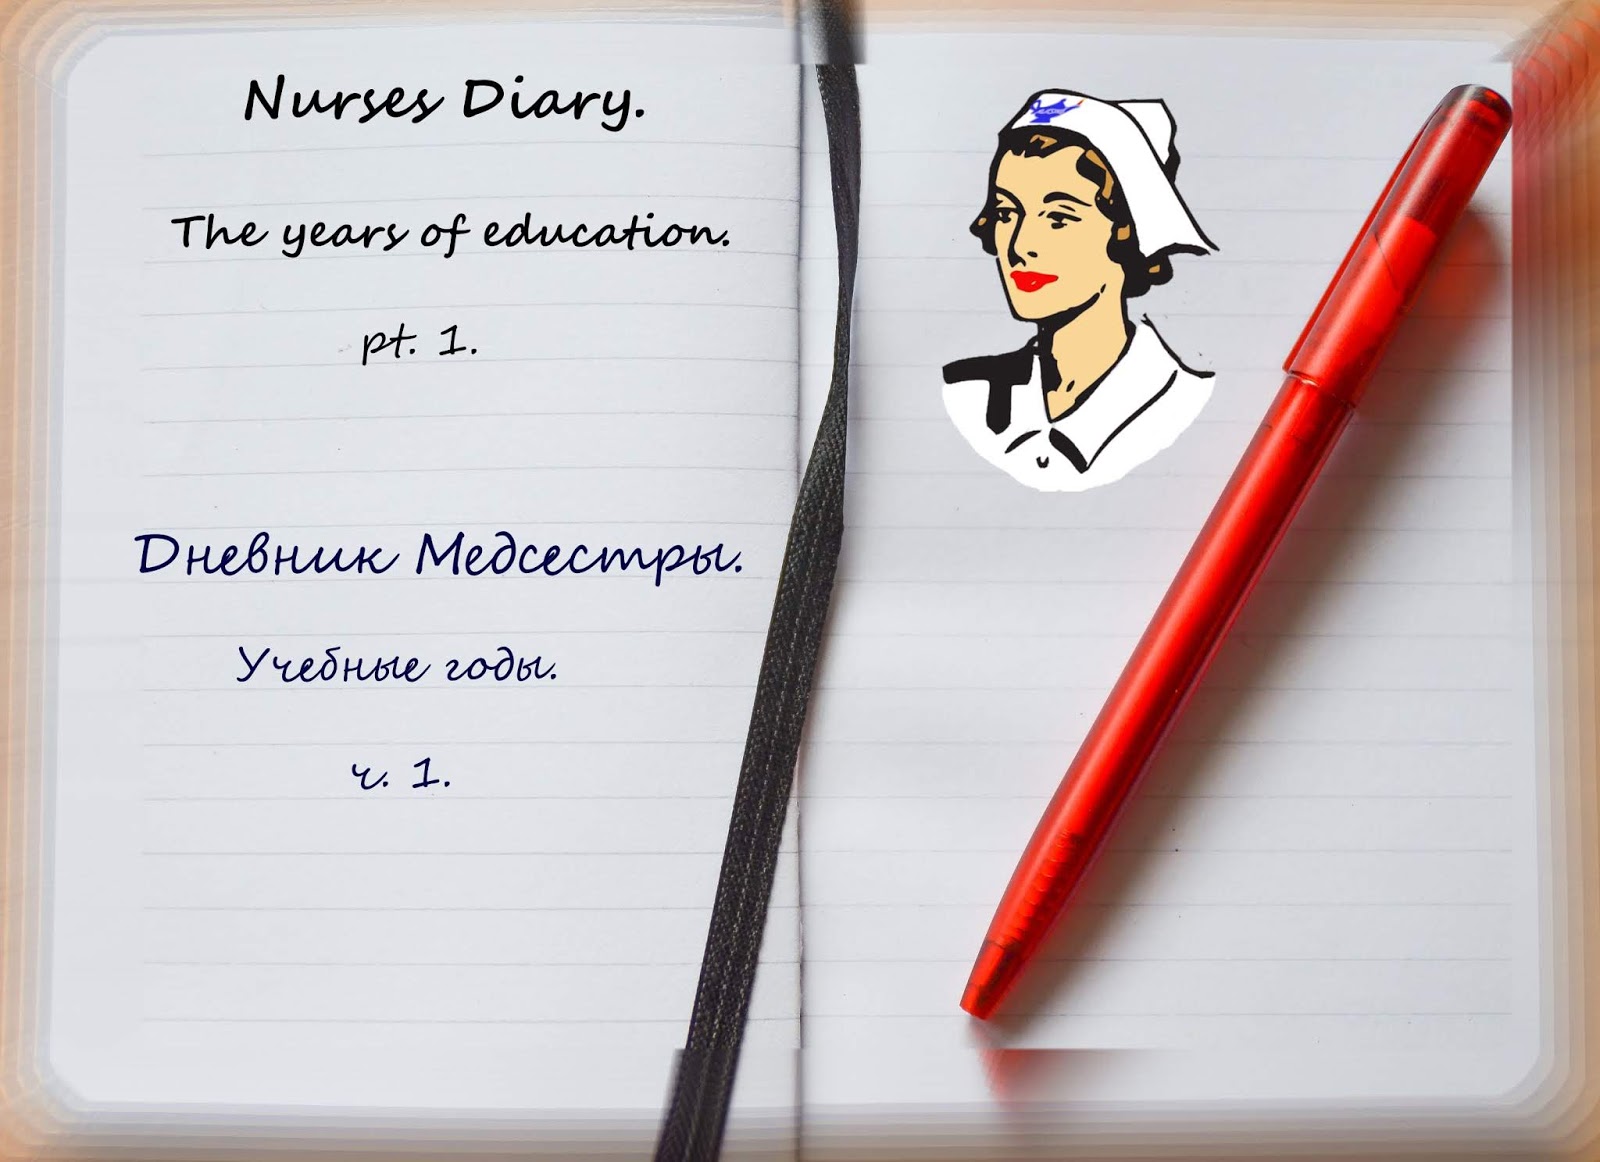 Nurses Diary.
The years of education.
pt. 1.
Дневник Медсестры.
Учебные годы.
ч. 1.